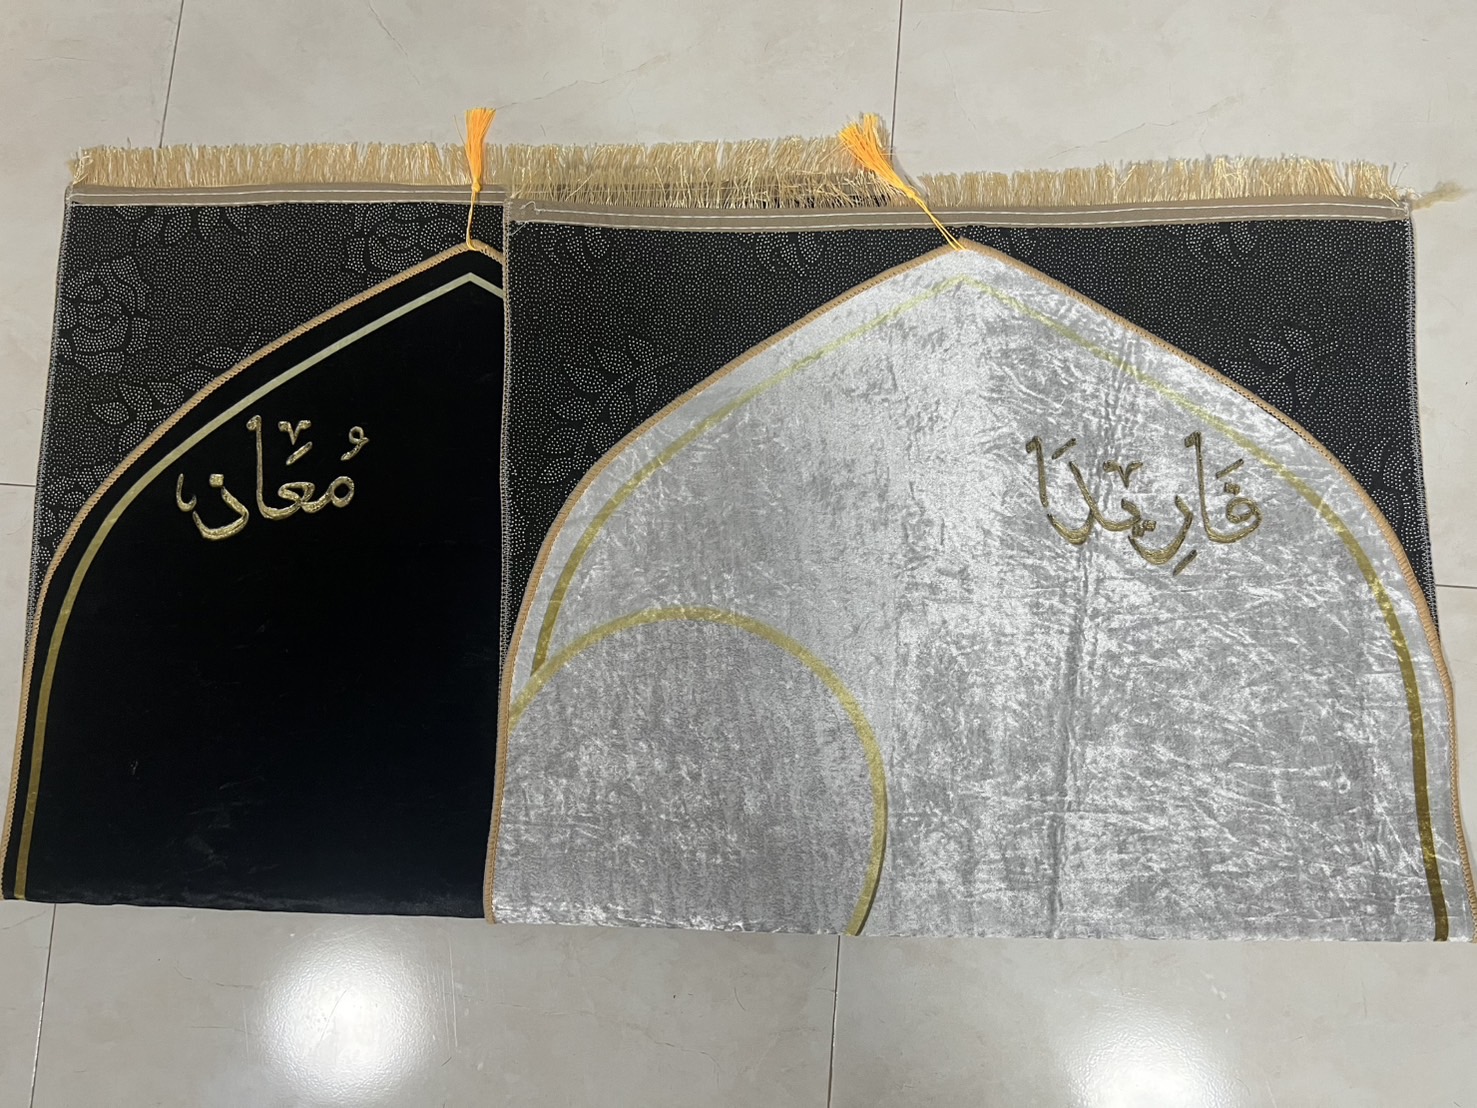 مُعَاذ
فَارِيدَا